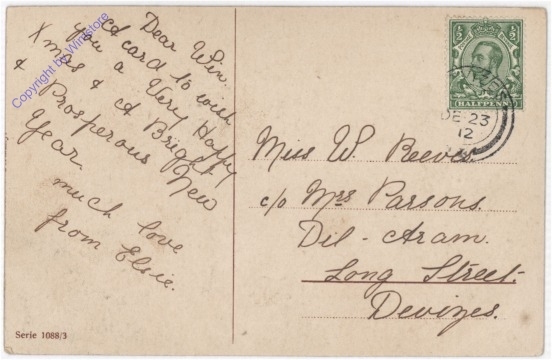 Dear Win.
A card to wish
you a Very Happy
Xmas & A Bright
& Prosperous New
Year
much love
from Elsie.
Copyright by Winkstore
Serie 1088/3
½ ½
HALFPENNY
DE 23
12
Miss W. Reeves.
c/o Mrs Parsons.
Dil-Aram.
Long Street.
Devizes.